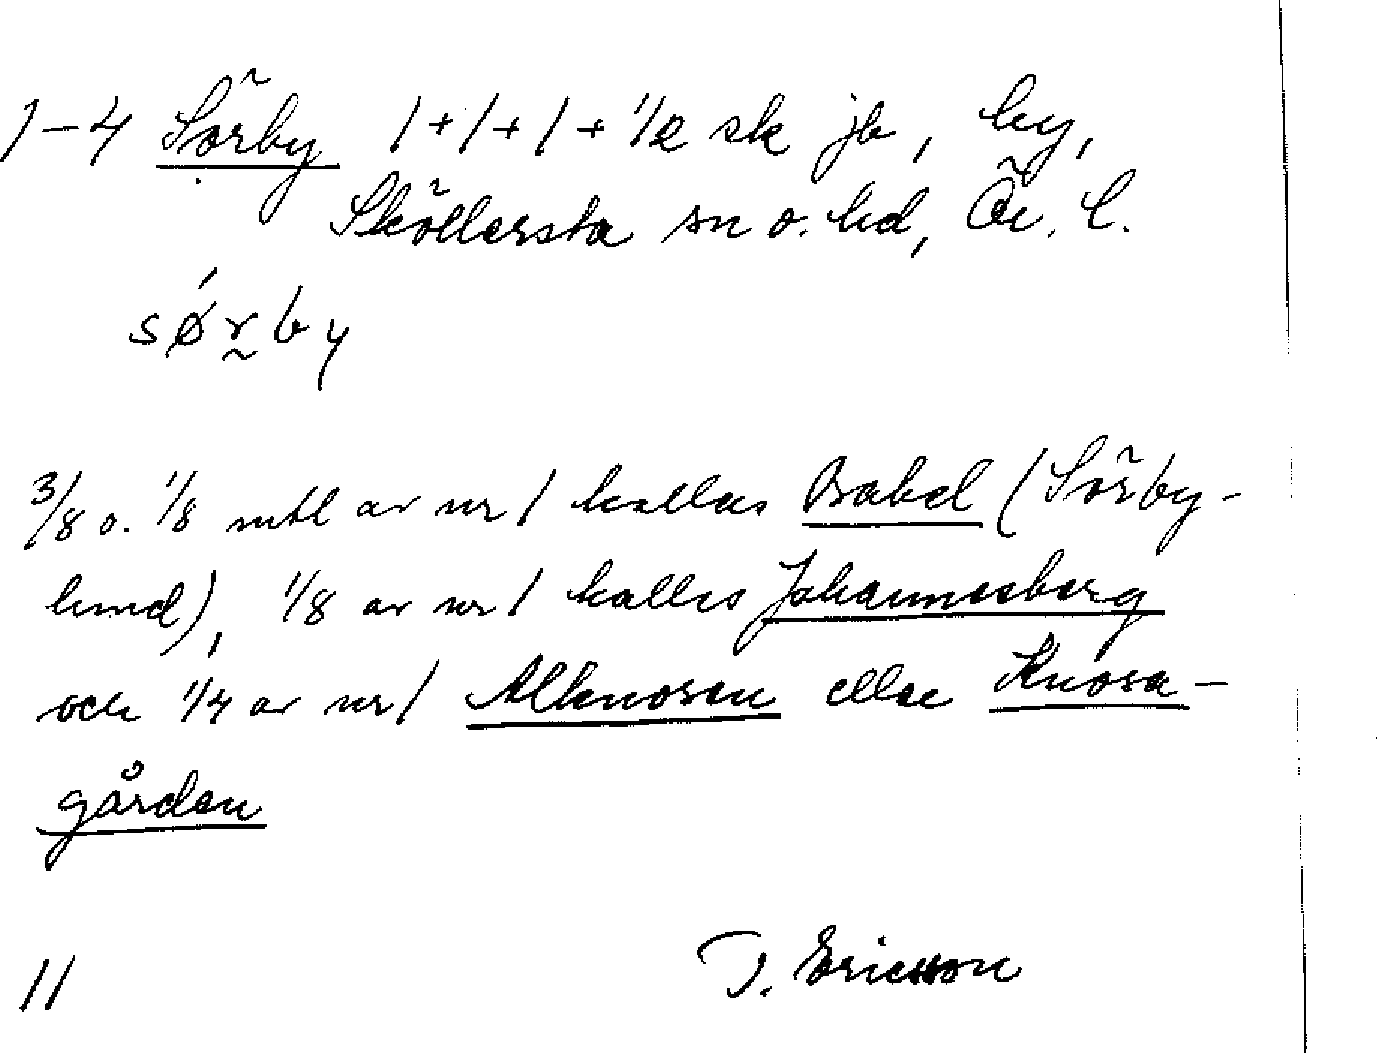 1-4 Sörby 1+1+1+1/2 sk jb, by,
Sköllersta sn o. hd, Ör. l.
sǿr̰by
3/8 o. 1/8 mtl av nr 1 kallas Babel (Sörby-
lund), 1/8 av nr 1 kallas Johannesberg
och 1/4 av nr 1 Allmosen eller Knosa-
gården
11 J. Ericsson